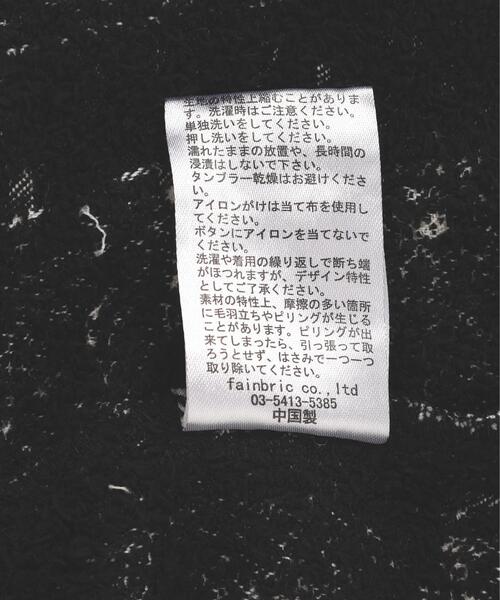 生地の特性上縮むことがありま
す。洗濯時はご注意ください。
単独洗いをしてください。
押し洗いをしてください。
濡れたままの放置や、長時間の
浸漬はしないで下さい。
タンブラー乾燥はお避けくださ
い。
アイロンがけは当て布を使用し
てください。
ボタンにアイロンを当てないで
ください。
洗濯や着用の繰り返しで断ち端
がほつれますが、デザイン特性
としてご了承ください。
素材の特性上、摩擦の多い箇所
に毛羽立ちやピリングが生じる
ことがあります。ピリングが出
来てしまったら、引っ張って取
ろうとせず、はさみで一つ一つ
取り除いてください。
fainbric co.,ltd
03-5413-5385
中国製